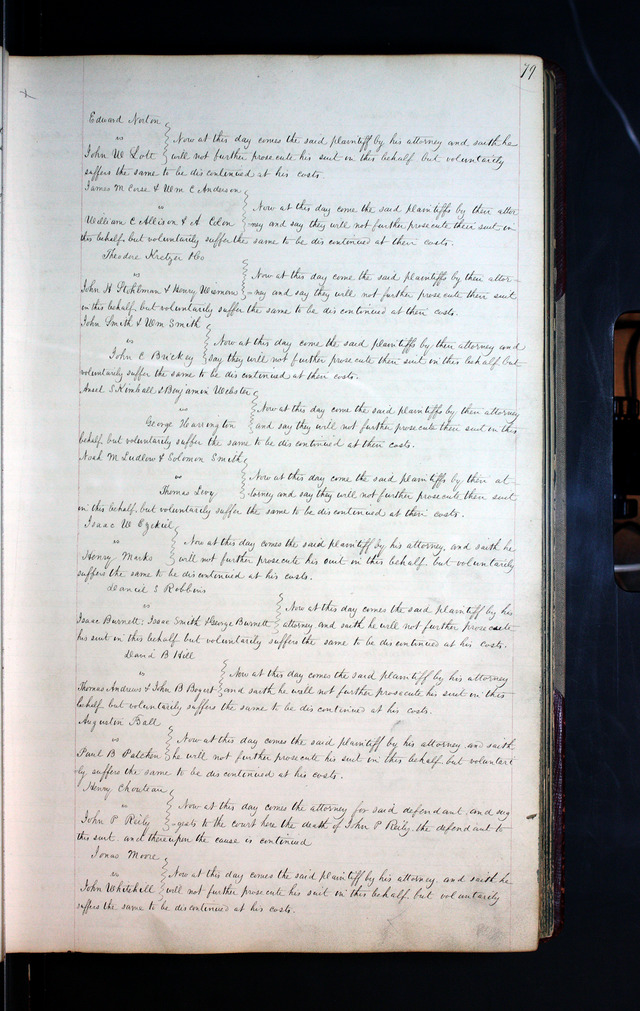 79
Edward Norton
vs
Now at this day comes the said plaintiff by his attorney and saith he
John W Lott will not further prosecute his suit in this behalf but voluntarily
suffers the same to be discontinued at his costs.
James M Corse & Wm C Anderson
vs
Now at this day come the said plaintiffs by their attor
William C Allison & A -ney and say they will not further prosecute their suit in
this behalf, but voluntarily suffer the same to be discontinued at their costs.
Theodore Kretzer
vs
Now at this day come the said plaintiffs by their attor-
John H & Henry -ney and say they will not further prosecute their suit
in this behalf, but voluntarily suffer the same to be discontinued at their costs.
John Smith & Wm Smith
vs
Now at this day come the said plaintiffs by their attorney and
John C Brickey say they will not further prosecute their suit in this behalf but
voluntarily suffer the same to be discontinued at their costs.
Ansel S Kimball & Benjamin Webster
vs
Now at this day come the said plaintiffs by their attorney
George Harrington and say they will not further prosecute their suit in this
behalf, but voluntarily suffer the same to be discontinued at their costs.
Noah M Ludlow & Solomon Smith
vs
Now at this day come the said plaintiffs by their at-
Thomas Levy -torney and say they will not further prosecute their suit
in this behalf, but voluntarily suffer the same to be discontinued at their costs.
Isaac W Ezekiel
vs
Now at this day comes the said plaintiff by his attorney, and saith he
Henry Marks will not further prosecute his suit in this behalf but voluntarily
suffers the same to be discontinued at his costs.
Daniel S Robbins
vs
Now at this day comes the said plaintiff by his
Isaac Burnett, Isaac Smith & George Burnett attorney and saith he will not further prosecute
his suit in this behalf but voluntarily suffers the same to be discontinued at his costs.
David B Hill
vs
Now at this day comes the said plaintiff by his attorney
Thomas Andrews & John B Bogert and saith he will not further prosecute his suit in this
behalf but voluntarily suffers the same to be discontinued at his costs.
Augustin Ball
vs
Now at this day comes the said plaintiff by his attorney and saith
Paul B Patchen he will not further prosecute his suit in this behalf but voluntari
ly suffers the same to be discontinued at his costs.
Henry Chouteau
vs
Now at this day comes the attorney for said defendant and sug
John P Reily -gests to the court here the death of John P Reily, the defendant to
this suit, and thereupon the cause is continued
Jonas Moore
vs
Now at this day comes the said plaintiff by his attorney and saith he
John Whitehill will not further prosecute his suit in this behalf but voluntarily
suffers the same to be discontinued at his costs.